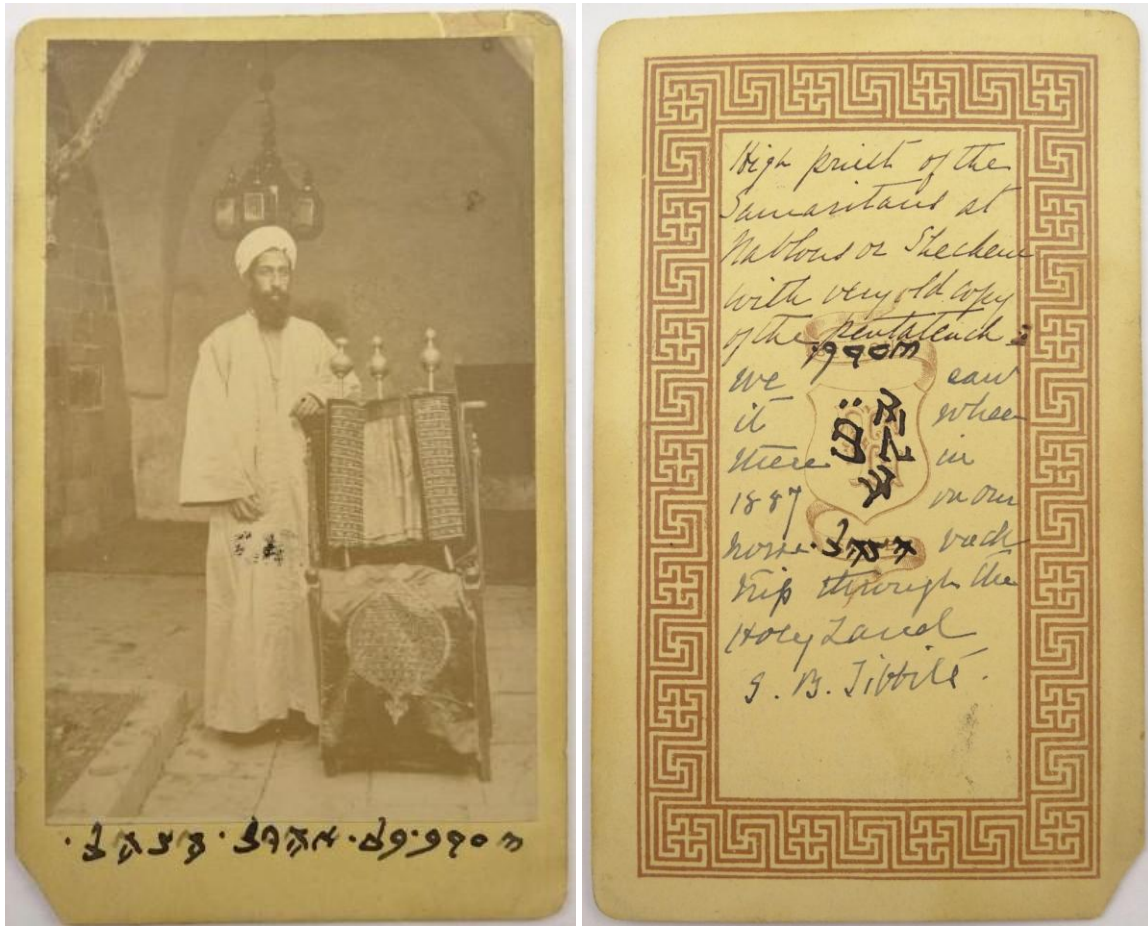 ࠉࠏࠒࠁ · ࠁࠍ · ࠀࠄࠓࠍ · ࠄࠊࠄࠍ ·
High priest of the
Samaritans at
Nablous or Shechem
with very old copy
of the pentateuch
ࠉࠏࠒࠁ ·
we saw
it when
there in
1887 on our
horse back
ࠄࠊࠄࠍ ·
trip through the
Holy Land
S. B. Tibbits.